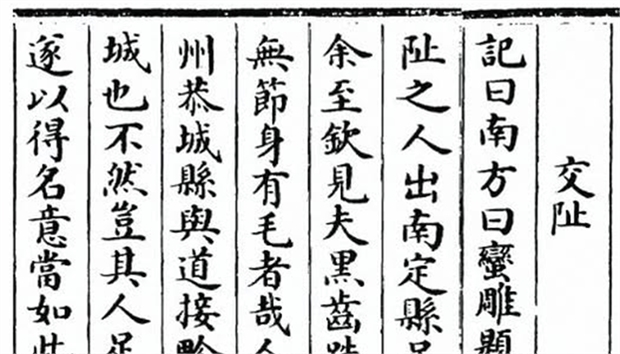 交阯
記曰南方曰蠻雕題
阯之人出南定縣足
余至欽見夫黑齒跣
無節身有毛者哉人
州恭城縣與道接畛
城也不然豈其人足
遂以得名意當如此